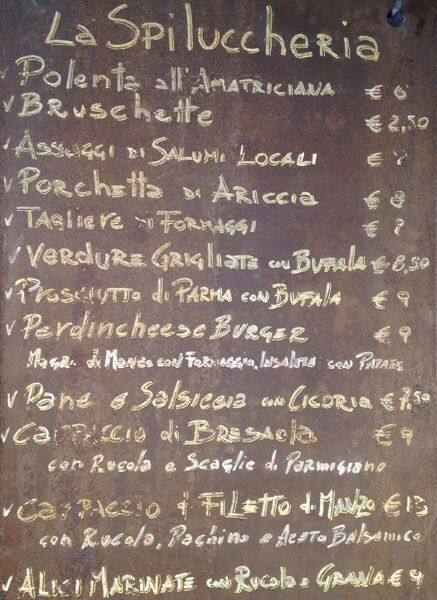 La Spiluccheria
Polenta all'Amatriciana € 6
Bruschette € 2,50
Assaggi di Salumi Locali €
Porchetta di Ariccia € 8
Tagliere di Formaggi €
Verdure Grigliate con Bufala € 8,50
Prosciutto di Parma con Bufala € 9
Perdincheese Burger € 9
di Manzo con Formaggio, Insalata con Patate
Pane e Salsiccia con Cicoria € 7,50
Carpaccio di Bresaola € 9
con Rucola e Scaglie di Parmigiano
Carpaccio di Filetto di Manzo € 13
con Rucola, Pachino e Aceto Balsamico
Alici Marinate con Rucola e Grana € 9